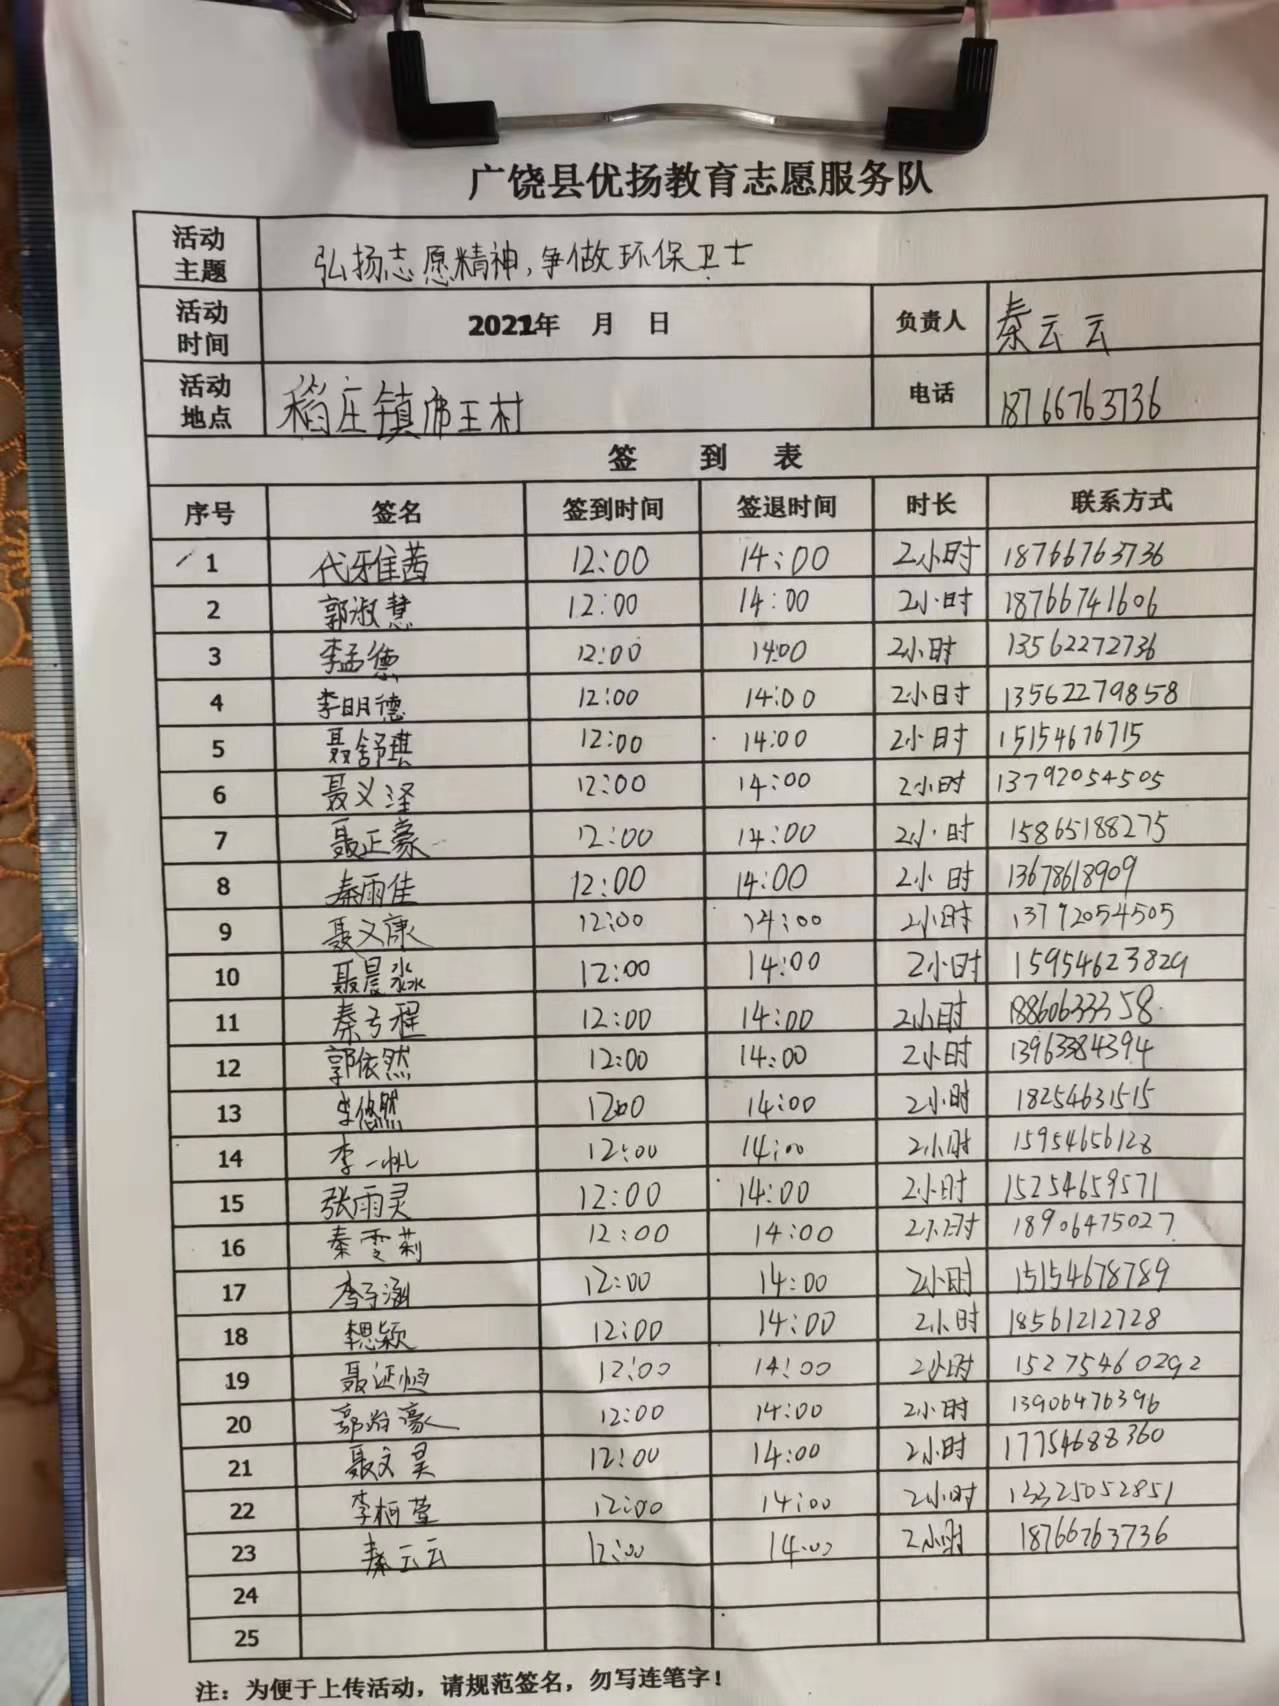 广饶县优扬教育志愿服务队
活动主题 弘扬志愿精神,争做环保卫士
活动时间 2022年 月 日 负责人 秦云云
活动地点 稻庄镇席王村 电话 18766763736
签 到 表
序号 签名 签到时间 签退时间 时长 联系方式
1 代雅茜 12:00 14:00 2小时 18766763736
2 郭淑慧 12:00 14:00 2小时 18766741606
3 李孟德 12:00 14:00 2小时 13562272736
4 李明德 12:00 14:00 2小时 13562279858
5 聂舒琪 12:00 14:00 2小时 15154676715
6 聂义泽 12:00 14:00 2小时 13792054505
7 聂正豪 12:00 14:00 2小时 15865188275
8 秦雨佳 12:00 14:00 2小时 13678618909
9 聂义康 12:00 14:00 2小时 13792054505
10 聂晨淼 12:00 14:00 2小时 15954623829
11 12:00 14:00 2小时 18860633358
12 郭依然 12:00 14:00 2小时 13963384394
13 李悠然 12:00 14:00 2小时 18254631515
14 李一帆 12:00 14:00 2小时 15954656128
15 张雨灵 12:00 14:00 2小时 15254659571
16 秦雯莉 12:00 14:00 2小时 18906475027
17 李子涵 12:00 14:00 2小时 15154678789
18 李思颖 12:00 14:00 2小时 18561212728
19 12:00 14:00 2小时 15275460292
20 12:00 14:00 2小时 13906476396
21 聂文昊 12:00 14:00 2小时 17754688360
22 李柯莹 12:00 14:00 2小时 13325052851
23 秦云云 12:00 14:00 2小时 18766763736
24
25
注：为便于上传活动，请规范签名，勿写连笔字！